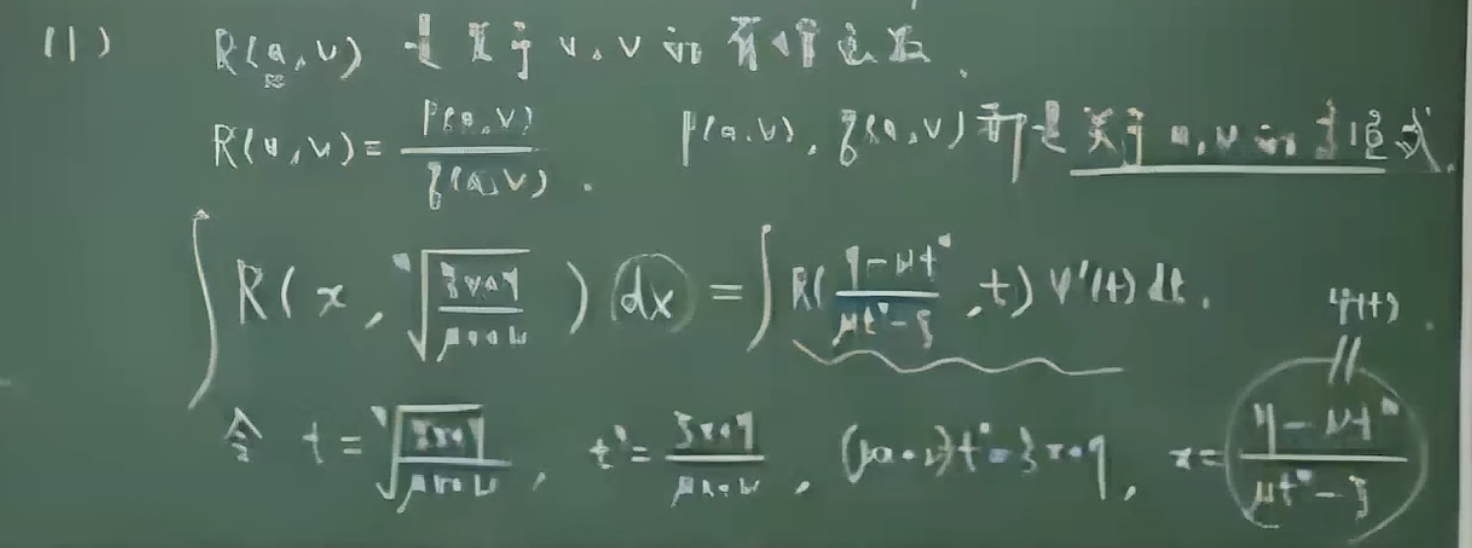 (1) R(u,v) 是关于 u,v 的有理函数.
R(u,v)= p(u,v)/q(u,v). p(u,v), q(u,v) 都是关于 u,v 的多项式.
∫R(x, ⁿ√((ξx+η)/(μx+ν))) dx = ∫R((η-νtⁿ)/(μtⁿ-ξ), t) φ'(t) dt. φ(t)
令 t = ⁿ√((ξx+η)/(μx+ν)), tⁿ = (ξx+η)/(μx+ν), (μx+ν)tⁿ = ξx+η, x = (η-νtⁿ)/(μtⁿ-ξ)